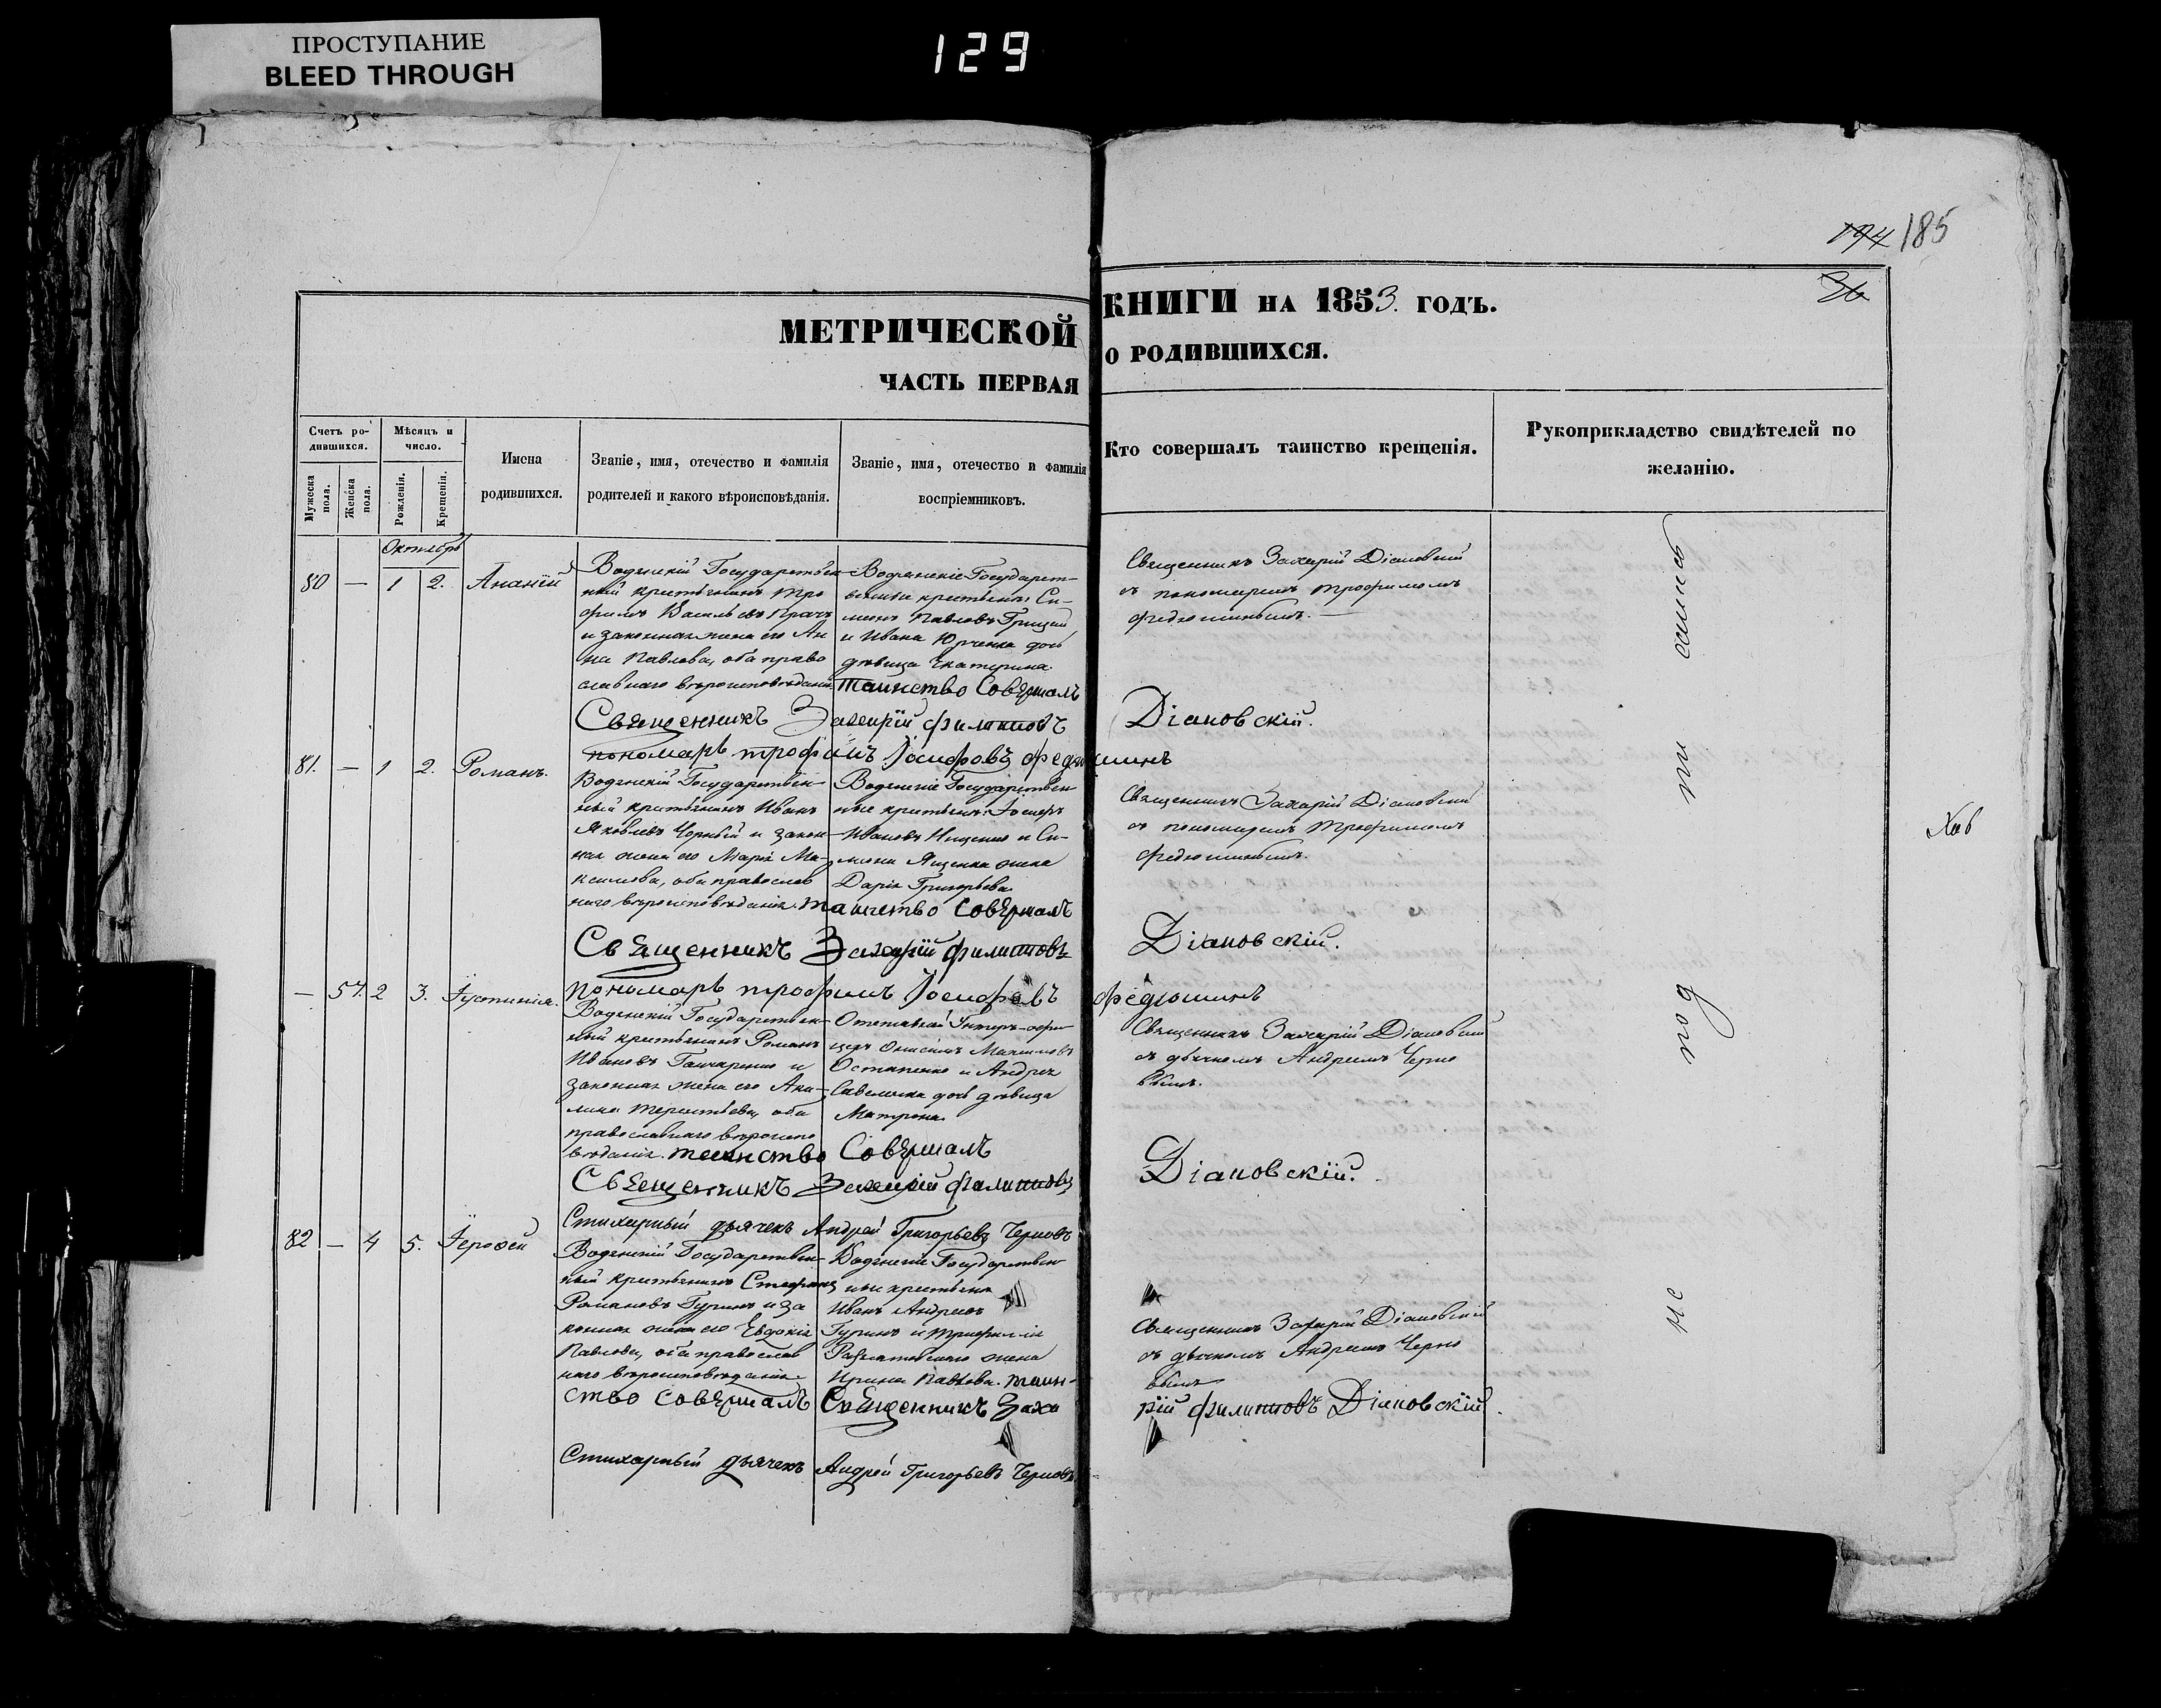 ПРОСТУПАНИЕ
BLEED THROUGH
129
194 185
36
МЕТРИЧЕСКОЙ КНИГИ НА 1853. ГОДЪ.
ЧАСТЬ ПЕРВАЯ О РОДИВШИХСЯ.
Счетъ ро-
дившихся.
Мужеска пола.
Женска пола.
Мѣсяцъ и
число.
Рожденія.
Крещенія.
Имена
родившихся.
Званіе, имя, отечество и фамилія
родителей и какого вѣроисповѣданія.
Званіе, имя, отечество и фамилія
воспріемниковъ.
Кто совершалъ таинство крещенія.
Рукоприкладство свидѣтелей по
желанію.
Октябрь
80 — 1 2. Ананій
Государствен-
ный крестьянинъ Тро
фимъ Васильевъ
и законная жена его Ан
на Павлова, оба право
славнаго вѣроисповѣданія.
Государст-
венные крестьяне: Си-
меонъ Павловъ Грицай
и Ивана Юрченка дочь
дѣвица Екатерина.
Священникъ Захарій Діановскій
съ пономаремъ Трофимомъ
Федюшинымъ.
Таинство Совершалъ
Священникъ Захарій Филиповъ Діановскій.
пономарь трофимъ Іосифовъ федюшинъ
81. — 1 2. Романъ.
Государствен-
ный крестьянинъ Иванъ
Яковлевъ Чорный и закон-
ная жена его Марія Ма-
ксимова, оба православ
наго вѣроисповѣданія.
Государствен
ные крестьяне: Іосифъ
Ивановъ Ищенко и Си-
меона Яценка жена
Дарія Григорьева.
Священникъ Захарій Діановскій
съ пономаремъ Трофимомъ
Федюшинымъ.
таинство Совершалъ
Священникъ Захарій филиповъ Діановскій.
пономарь трофимъ Іосифовъ федюшинъ
— 57. 2 3. Іустинія.
Государствен-
ный крестьянинъ Романъ
Ивановъ Гончаренко и
законная жена его Аки-
лина Терентьева, оба
православнаго вѣроиспо
вѣданія.
Отставной Унтеръ-офи
церъ Онисимъ
Остапенко и Андрея
дочь дѣвица
Матрона.
Священникъ Захарій Діановскій
съ дьячкомъ Андреемъ Черно
вымъ.
таинство Совершалъ
Священникъ Захарій филиповъ Діановскій.
Стихарный дьячекъ Андрей Григорьевъ Черновъ
82 — 4 5. Іерофей
Государствен-
ный крестьянинъ Стефанъ
Романовъ Гуринъ и за
конная жена его Евдокія
Павлова, оба православ
наго вѣроисповѣданія
Государствен
ные крестьяне
Иванъ Андреевъ
Гуринъ и
жена
Ирина Павлова.
Священникъ Захарій Діановскій
съ дьячкомъ Андреемъ Черно
вымъ
таин-
ство совершалъ Священникъ Захарій филиповъ Діановскій.
Стихарный дьячекъ Андрей Григорьевъ Черновъ